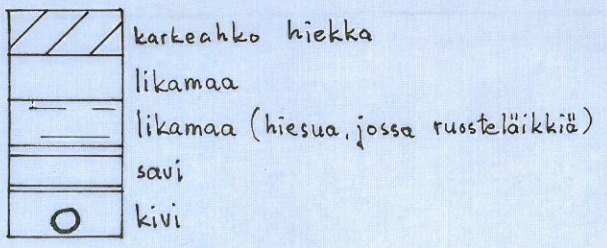 karkeahko hiekka
likamaa
likamaa (hiesua, jossa ruosteläikkiä)
savi
kivi